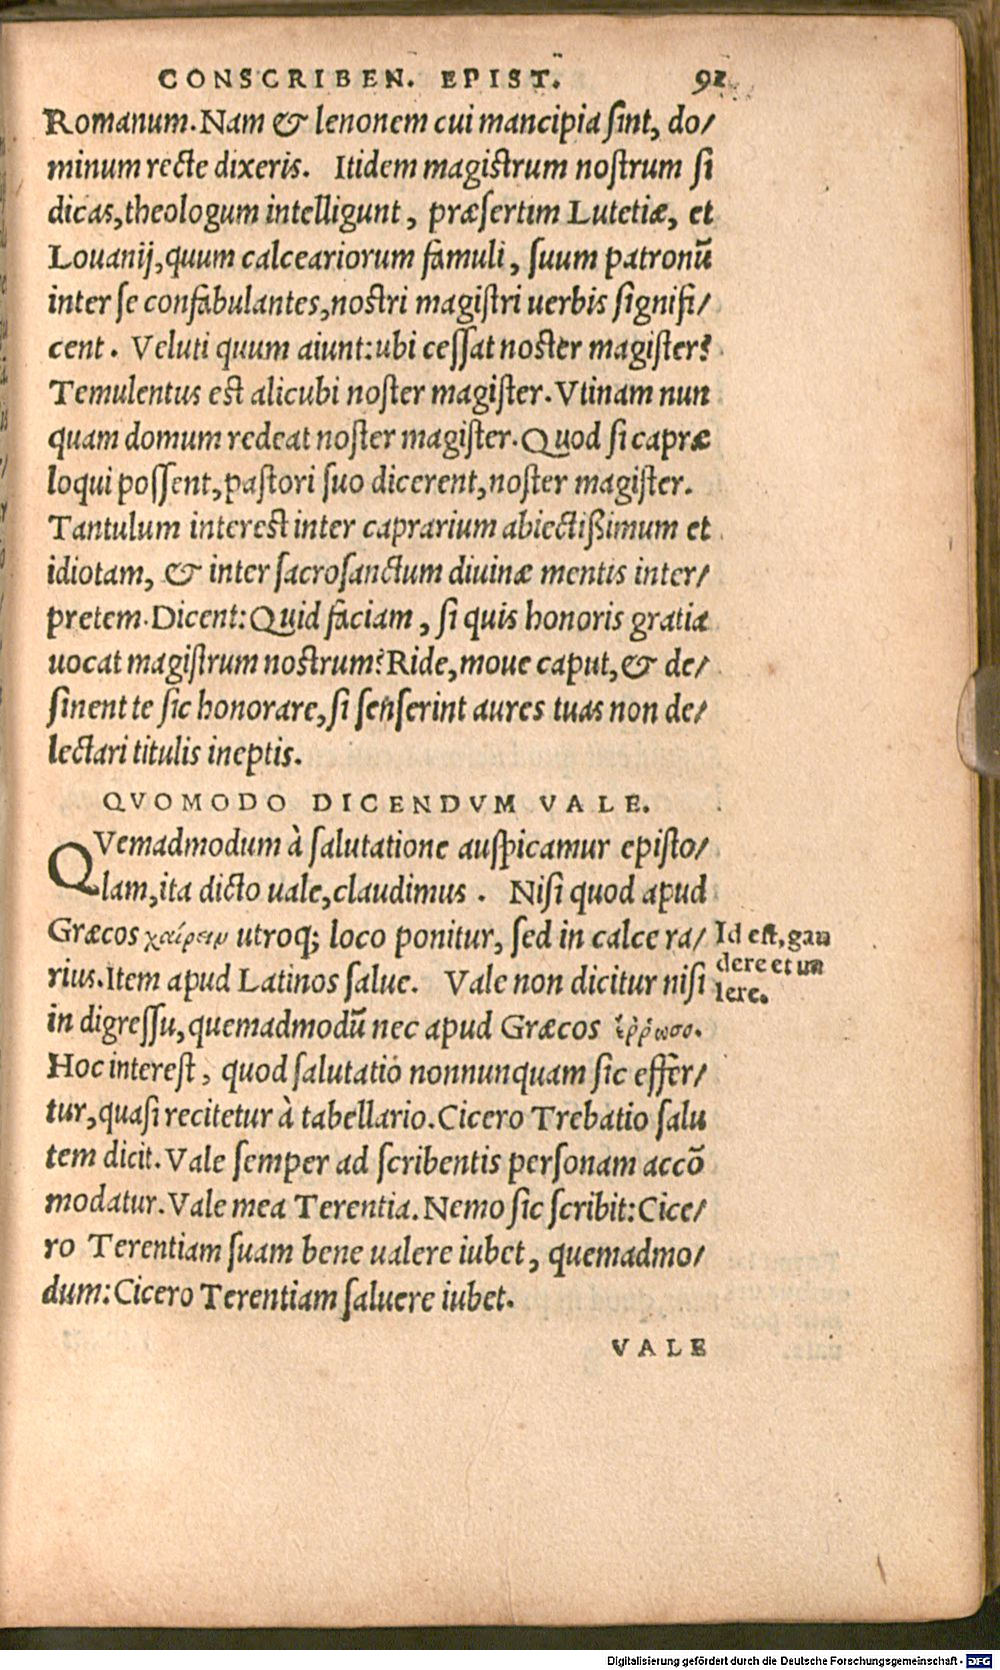 CONSCRIBEN. EPIST. 91
Romanum. Nam & lenonem cui mancipia ſint, do/
minum recte dixeris. Itidem magiſtrum noſtrum ſi
dicas, theologum intelligunt, præſertim Lutetiæ, et
Louanij, quum calceariorum famuli, ſuum patronū
inter ſe confabulantes, noſtri magiſtri uerbis ſignifi/
cent. Veluti quum aiunt: ubi ceſſat noſter magiſter?
Temulentus eſt alicubi noſter magiſter. Vtinam nun
quam domum redeat noſter magiſter. Quod ſi capræ
loqui poſſent, paſtori ſuo dicerent, noſter magiſter.
Tantulum intereſt inter caprarium abiectißimum et
idiotam, & inter ſacroſanctum diuinæ mentis inter/
pretem. Dicent: Quid faciam, ſi quis honoris gratia
uocat magiſtrum noſtrum? Ride, moue caput, & de/
ſinent te ſic honorare, ſi ſenſerint aures tuas non de/
lectari titulis ineptis.
QVOMODO DICENDVM VALE.
QVemadmodum à ſalutatione auſpicamur epiſto/
lam, ita dicto uale, claudimus. Niſi quod apud
Græcos χαίρειν utroq; loco ponitur, ſed in calce ra/
rius. Item apud Latinos ſalue. Vale non dicitur niſi
in digreſſu, quemadmodū nec apud Græcos ἔῤῥωσο.
Hoc intereſt, quod ſalutatio nonnunquam ſic effer/
tur, quaſi recitetur à tabellario. Cicero Trebatio ſalu
tem dicit. Vale ſemper ad ſcribentis perſonam accō
modatur. Vale mea Terentia. Nemo ſic ſcribit: Cice/
ro Terentiam ſuam bene ualere iubet, quemadmo/
dum: Cicero Terentiam ſaluere iubet.
VALE
Id eſt, gau
dere et ua
lere.
Digitalisierung gefördert durch die Deutsche Forschungsgemeinschaft - DFG